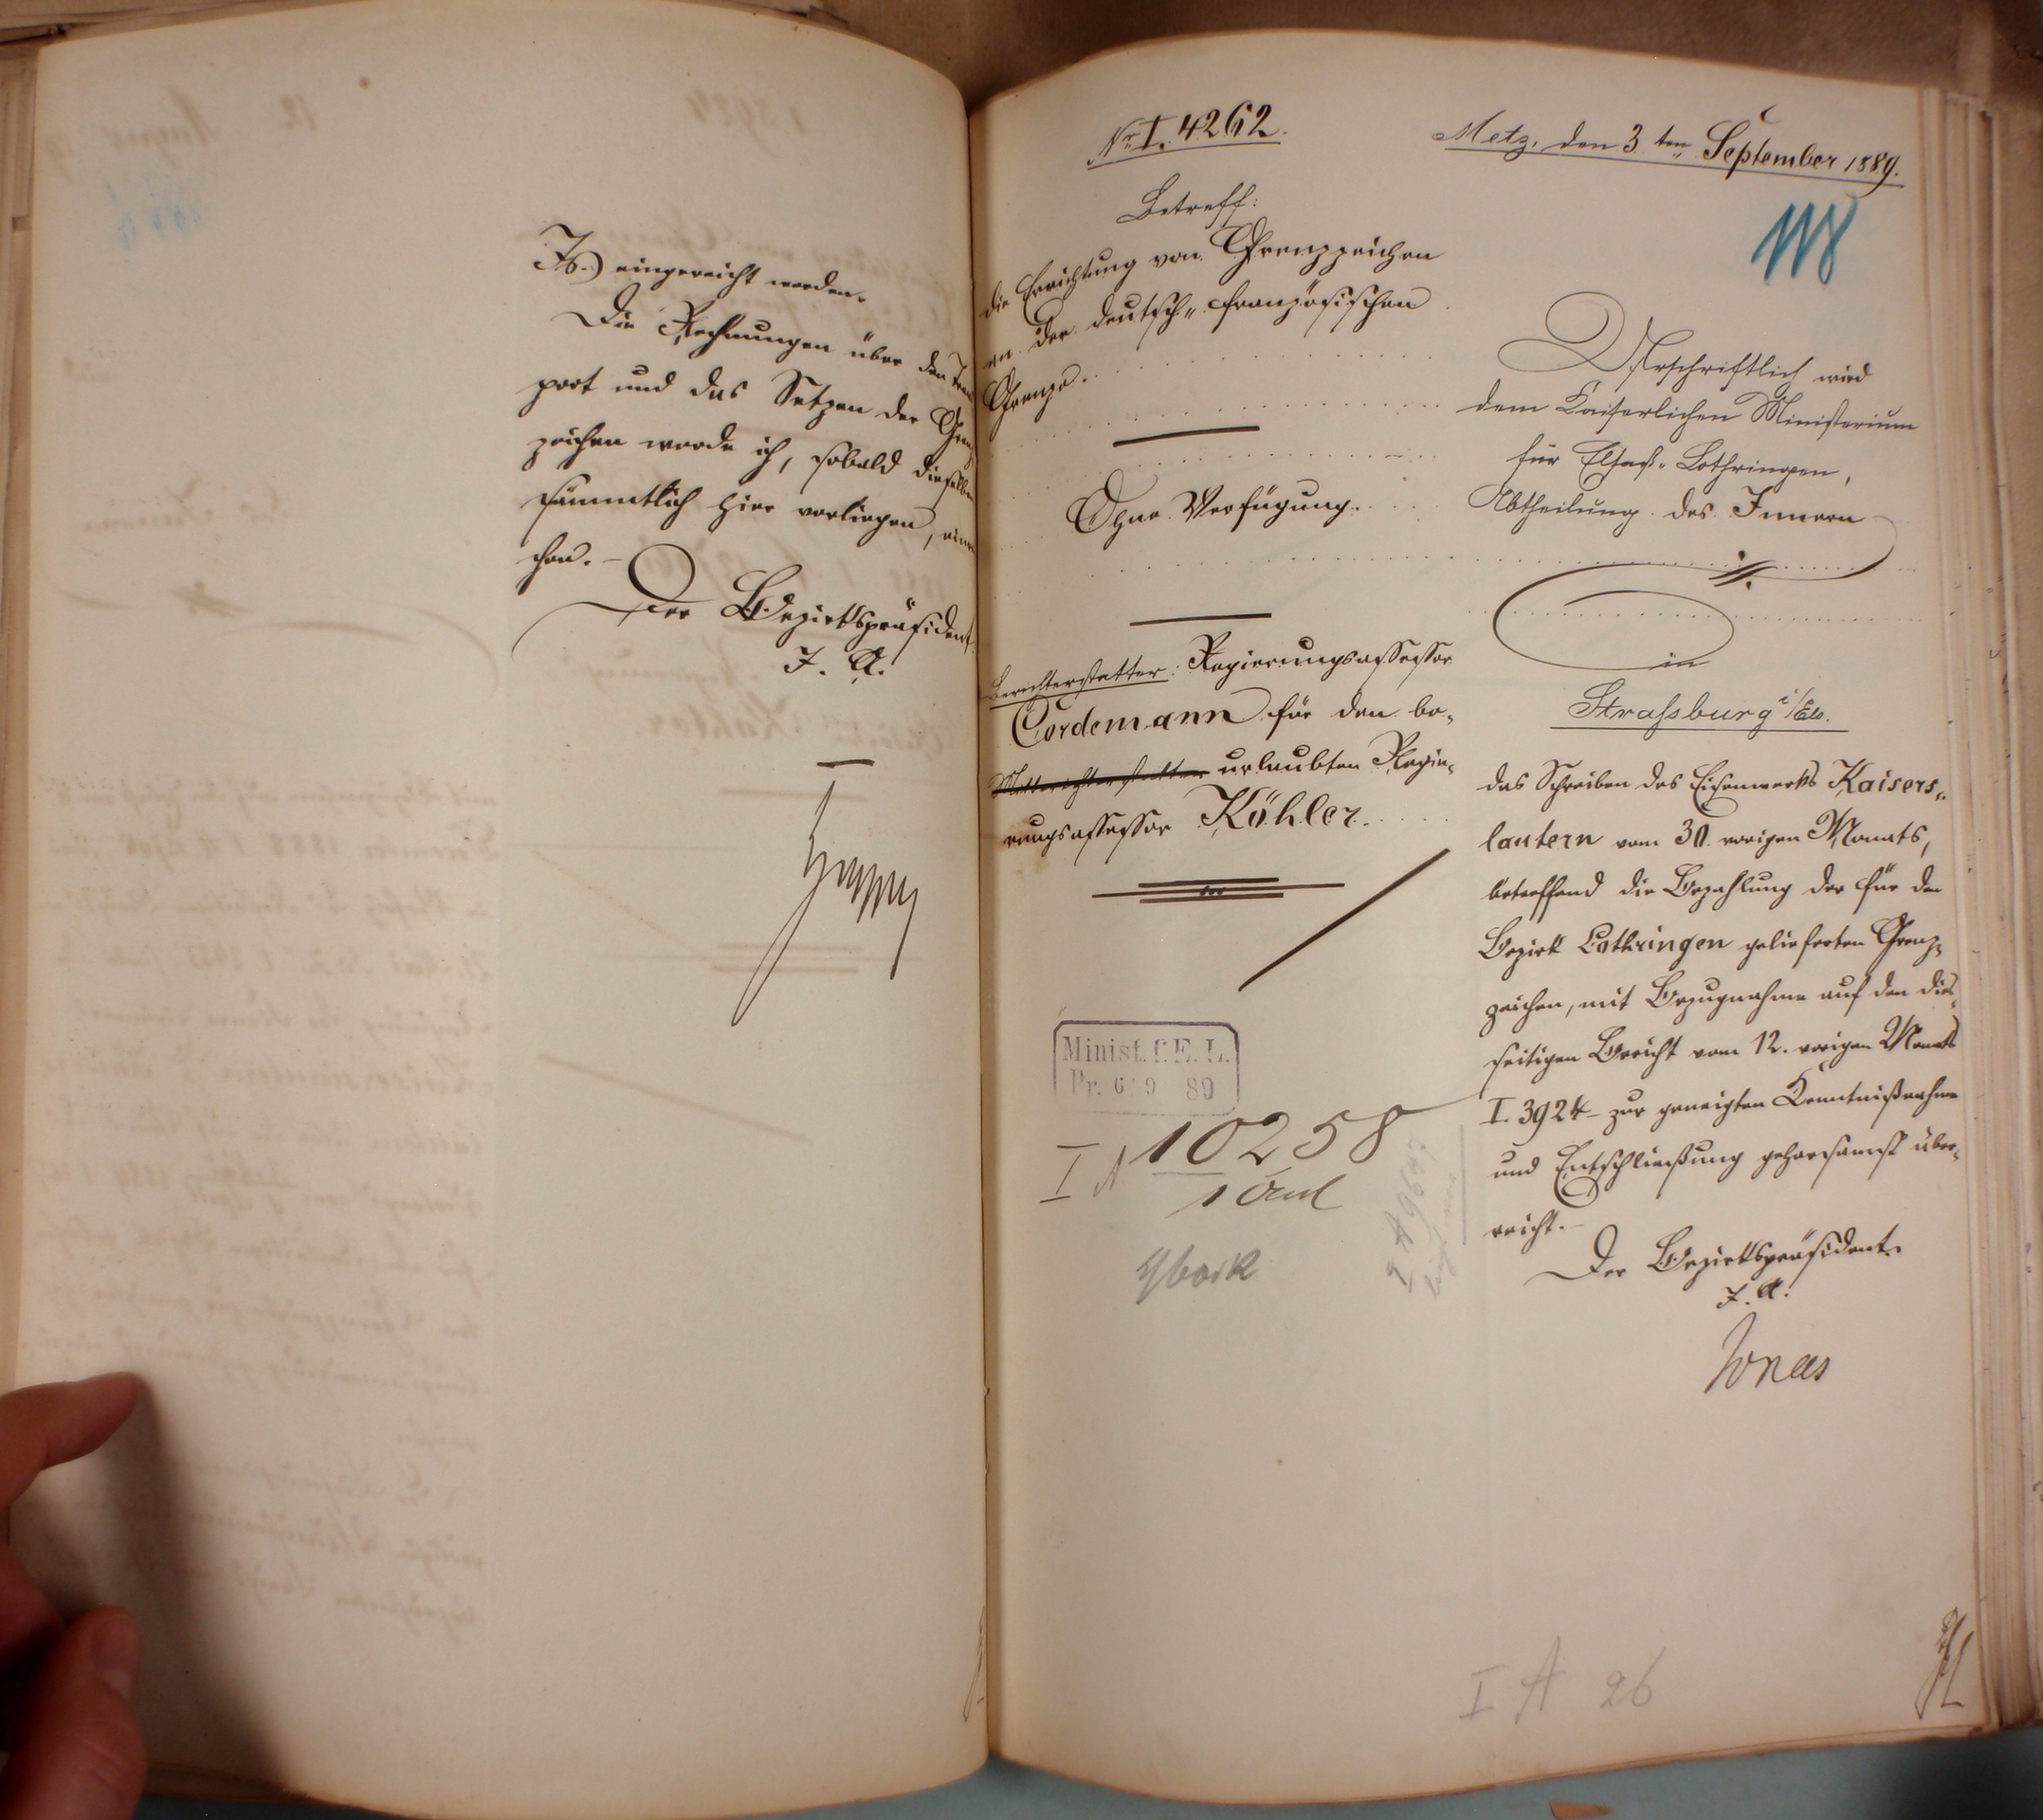 Js.) eingereicht worden.
Die Rechnungen über den Trans
port und das Setzen der Grenz
zeichen werde ich, sobald dieselben
sämmtlich hier vorliegen, einrei
chen. –
Der Bezirkspräsident.
J. A.
Nr. I. 4262.
Betreff:
die Errichtung von Grenzzeichen
an der deutsch-französischen
Grenze.
Ohne Verfügung.
Berichterstatter: Regierungsassessor
Cordemann für den be-
Mitberichterstatter urlaubten Regie-
rungsassessor Köhler.
Minist. f. E. L.
Pr. 6 9 89
I A 10258
I A 9647
Metz, den 3 ten September 1889.
Urschriftlich wird
dem Kaiserlichen Ministerium
für Elsaß-Lothringen,
Abtheilung des Innern
in
Strassburg i/Els.
das Schreiben des Eisenwerks Kaisers-
lautern vom 30. vorigen Monats,
betreffend die Bezahlung der für den
Bezirk Lothringen gelieferten Grenz-
zeichen, mit Bezugnahme auf den dies-
seitigen Bericht vom 12. vorigen Monats
I. 3924 – zur geneigten Kenntnißnahme
und Entschließung gehorsamst über-
reicht. –
Der Bezirkspräsident.
J. A.
Jonas
I A 26